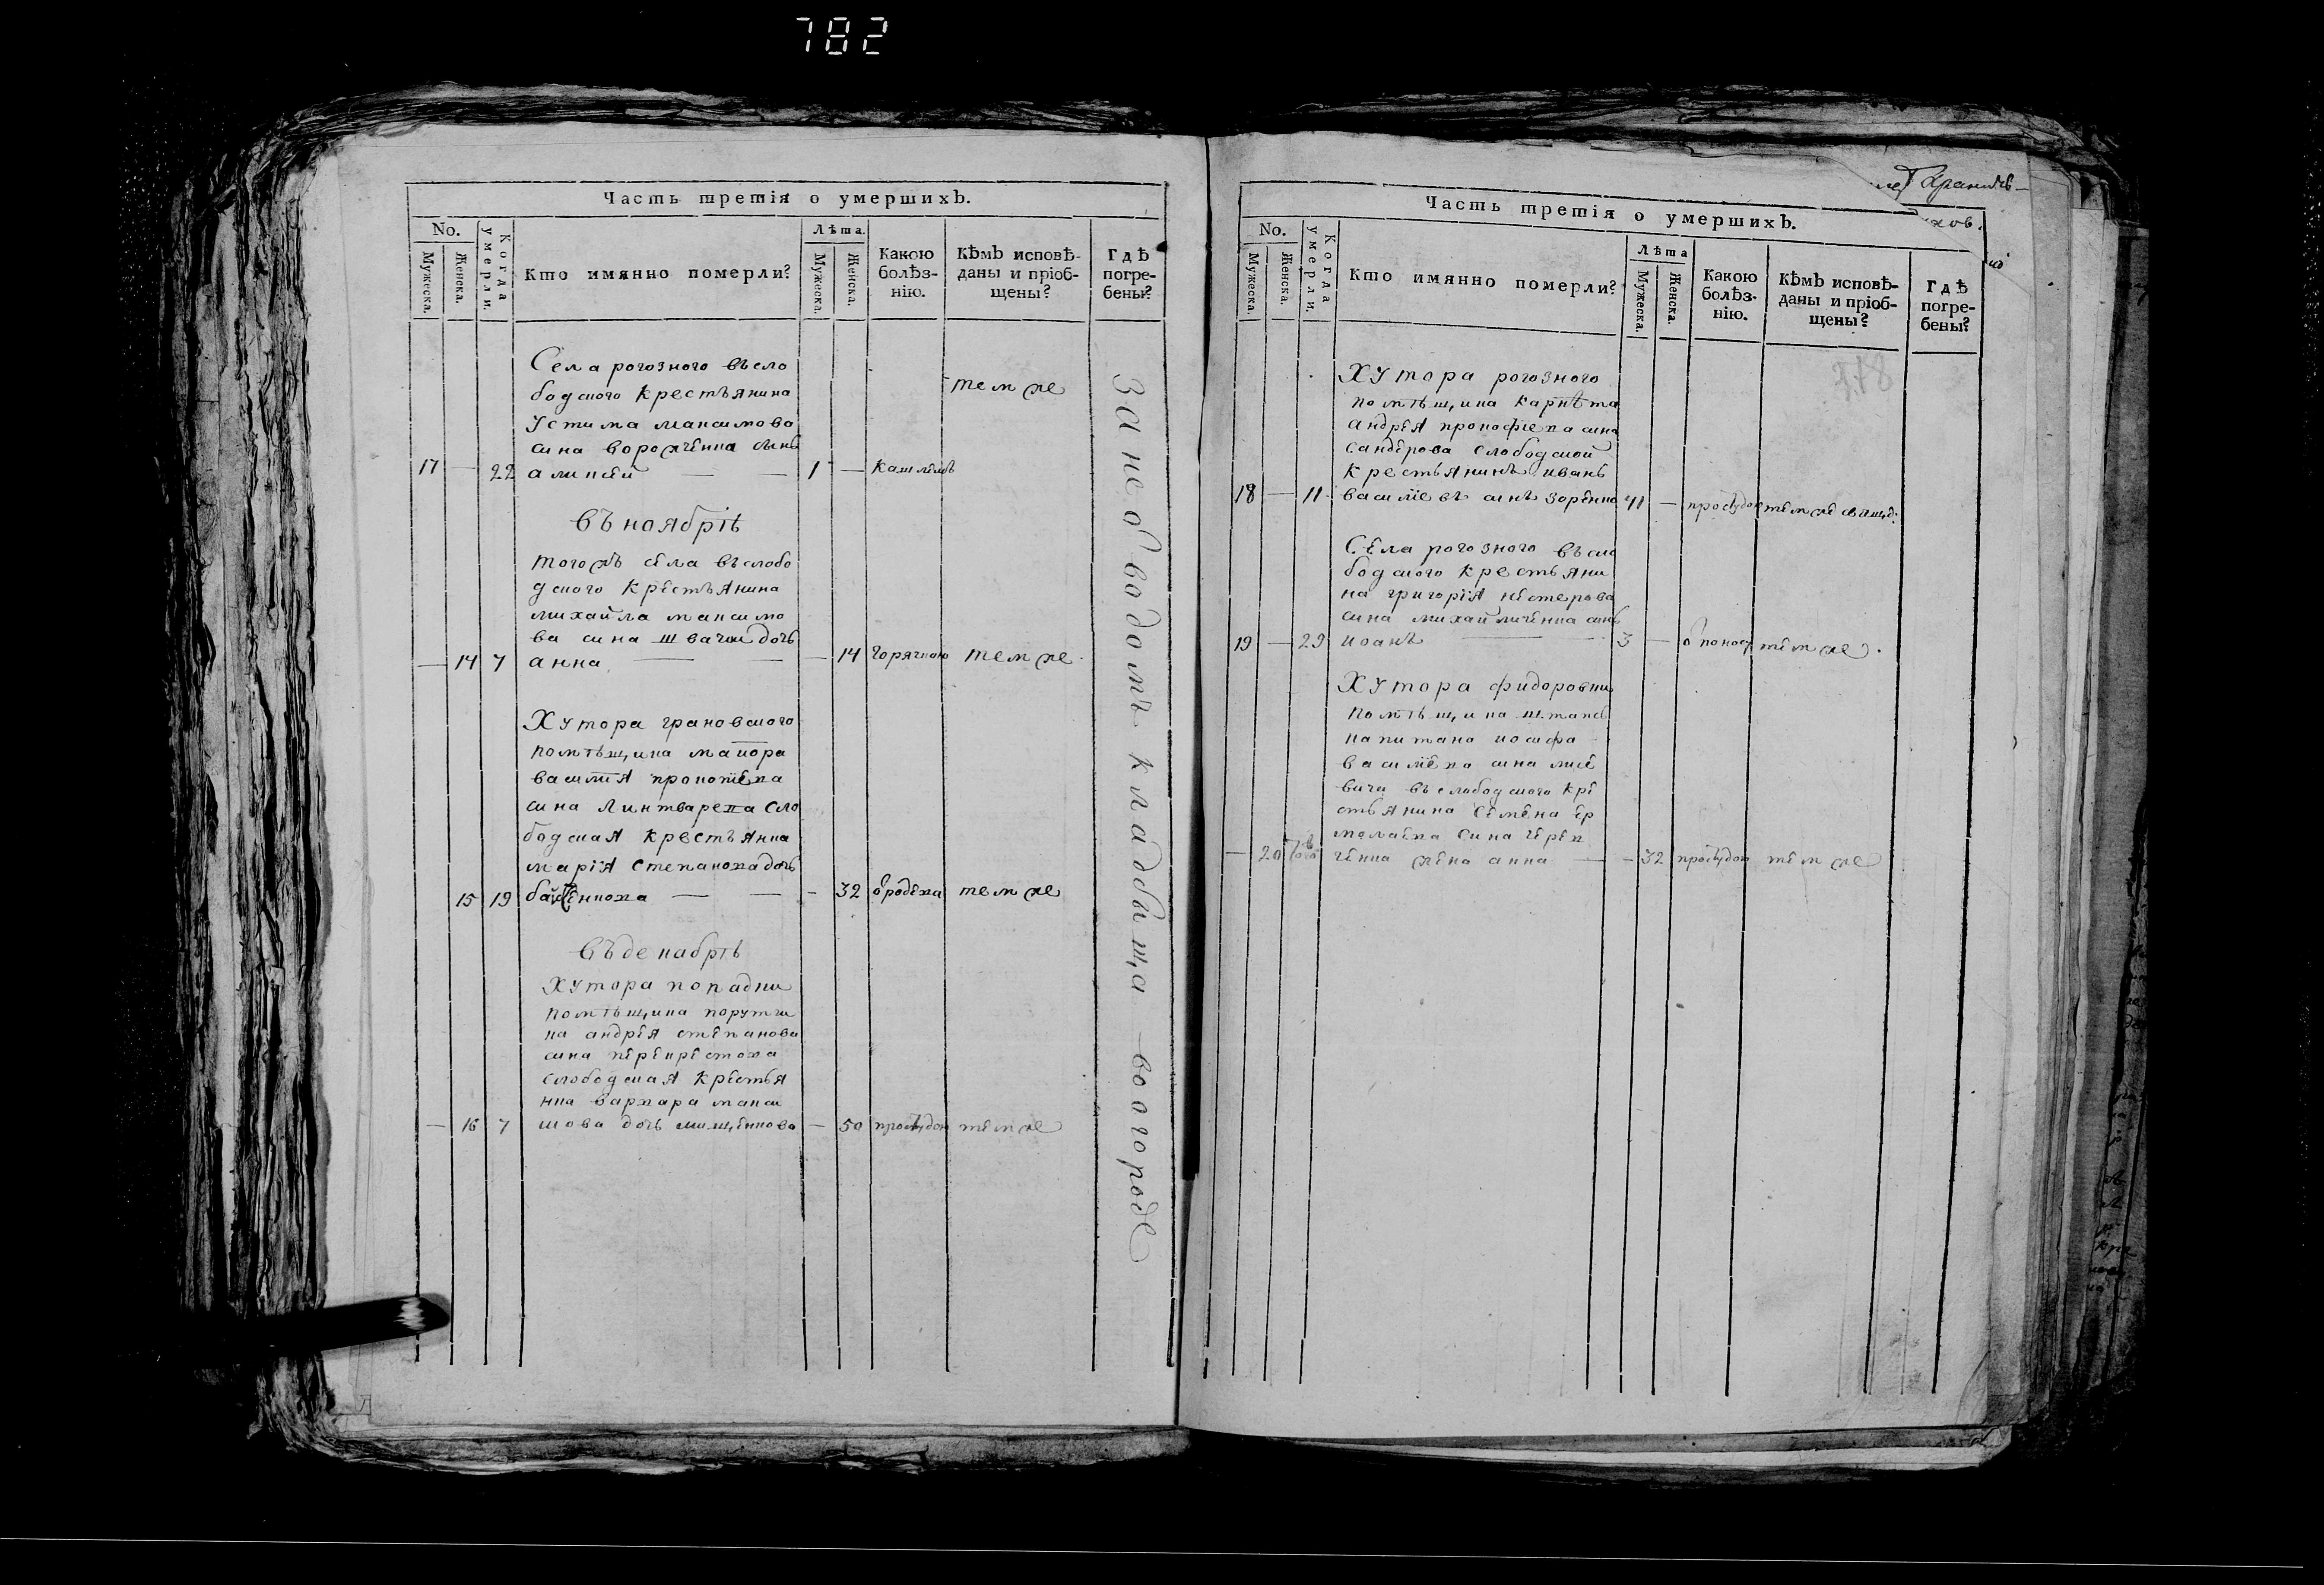 782
Часть третія о умершихъ.
No.
Мужеска.
Женска.
Когда умерли.
Кто имянно померли?
Лѣта.
Мужеска.
Женска.
Какою болѣз-
нію.
Кѣмъ исповѣ-
даны и пріоб-
щены?
Гдѣ
погре-
бены?
Села рогозного въсло
бодского крестъянина
тем же
устима максимова
сина ворожченка синъ
17 — 22 аликсѣй — — 1 — кашлемъ
въ ноябріѣ
тогожъ села въслобо
дского крестъянина
михайла максимо
ва сина швачки дочъ
— 14 7 анна — — — 14 горячкою тем же
Хутора грановского
помѣщика маиора
василїя прокопїева
сина Линтварева сло
бодская крестъянка
марїя степанова дочъ
15 19 — — - 32 ѿ родѣва тем же
въ декабрѣ
Хутора попадки
помѣщика порутчи
ка андрея степанова
сина перекрестова
слободская крестья
нка варвара макси
мова дочъ мищенкова
— 16 7 — 50 простудою тем же
За неоѣводомъ кладбища — во огороде
Часть третія о умершихъ.
No.
Мужеска.
Женска.
Когда умерли.
Кто имянно померли?
Лѣта
Мужеска.
Женска.
Какою
болѣз-
нію.
Кѣмъ исповѣ-
даны и пріоб-
щены?
Гдѣ
погре-
бены?
Хутора рогозного
помѣщика карнѣта
андрѣя прокофїева сина
сандѣрова слободской
крестьянинъ иванъ
18 — 11 василїевъ синъ зорѣнко 41 — простудою тем же свящ:
Села рогозного въсло
бодского крестьяни
на григорїя нестерова
сина михайличенка синъ
19 — 29 иоанъ — 3 — ѿ поносу тем же.
Хутора фидоровки
помѣщика штапсъ
капитана иосифа
василїева сина лисе
вича въслободского кре
стьянина семена ер
молаева сина череп
— 20 ченка жена анна — - 32 простудою тем же